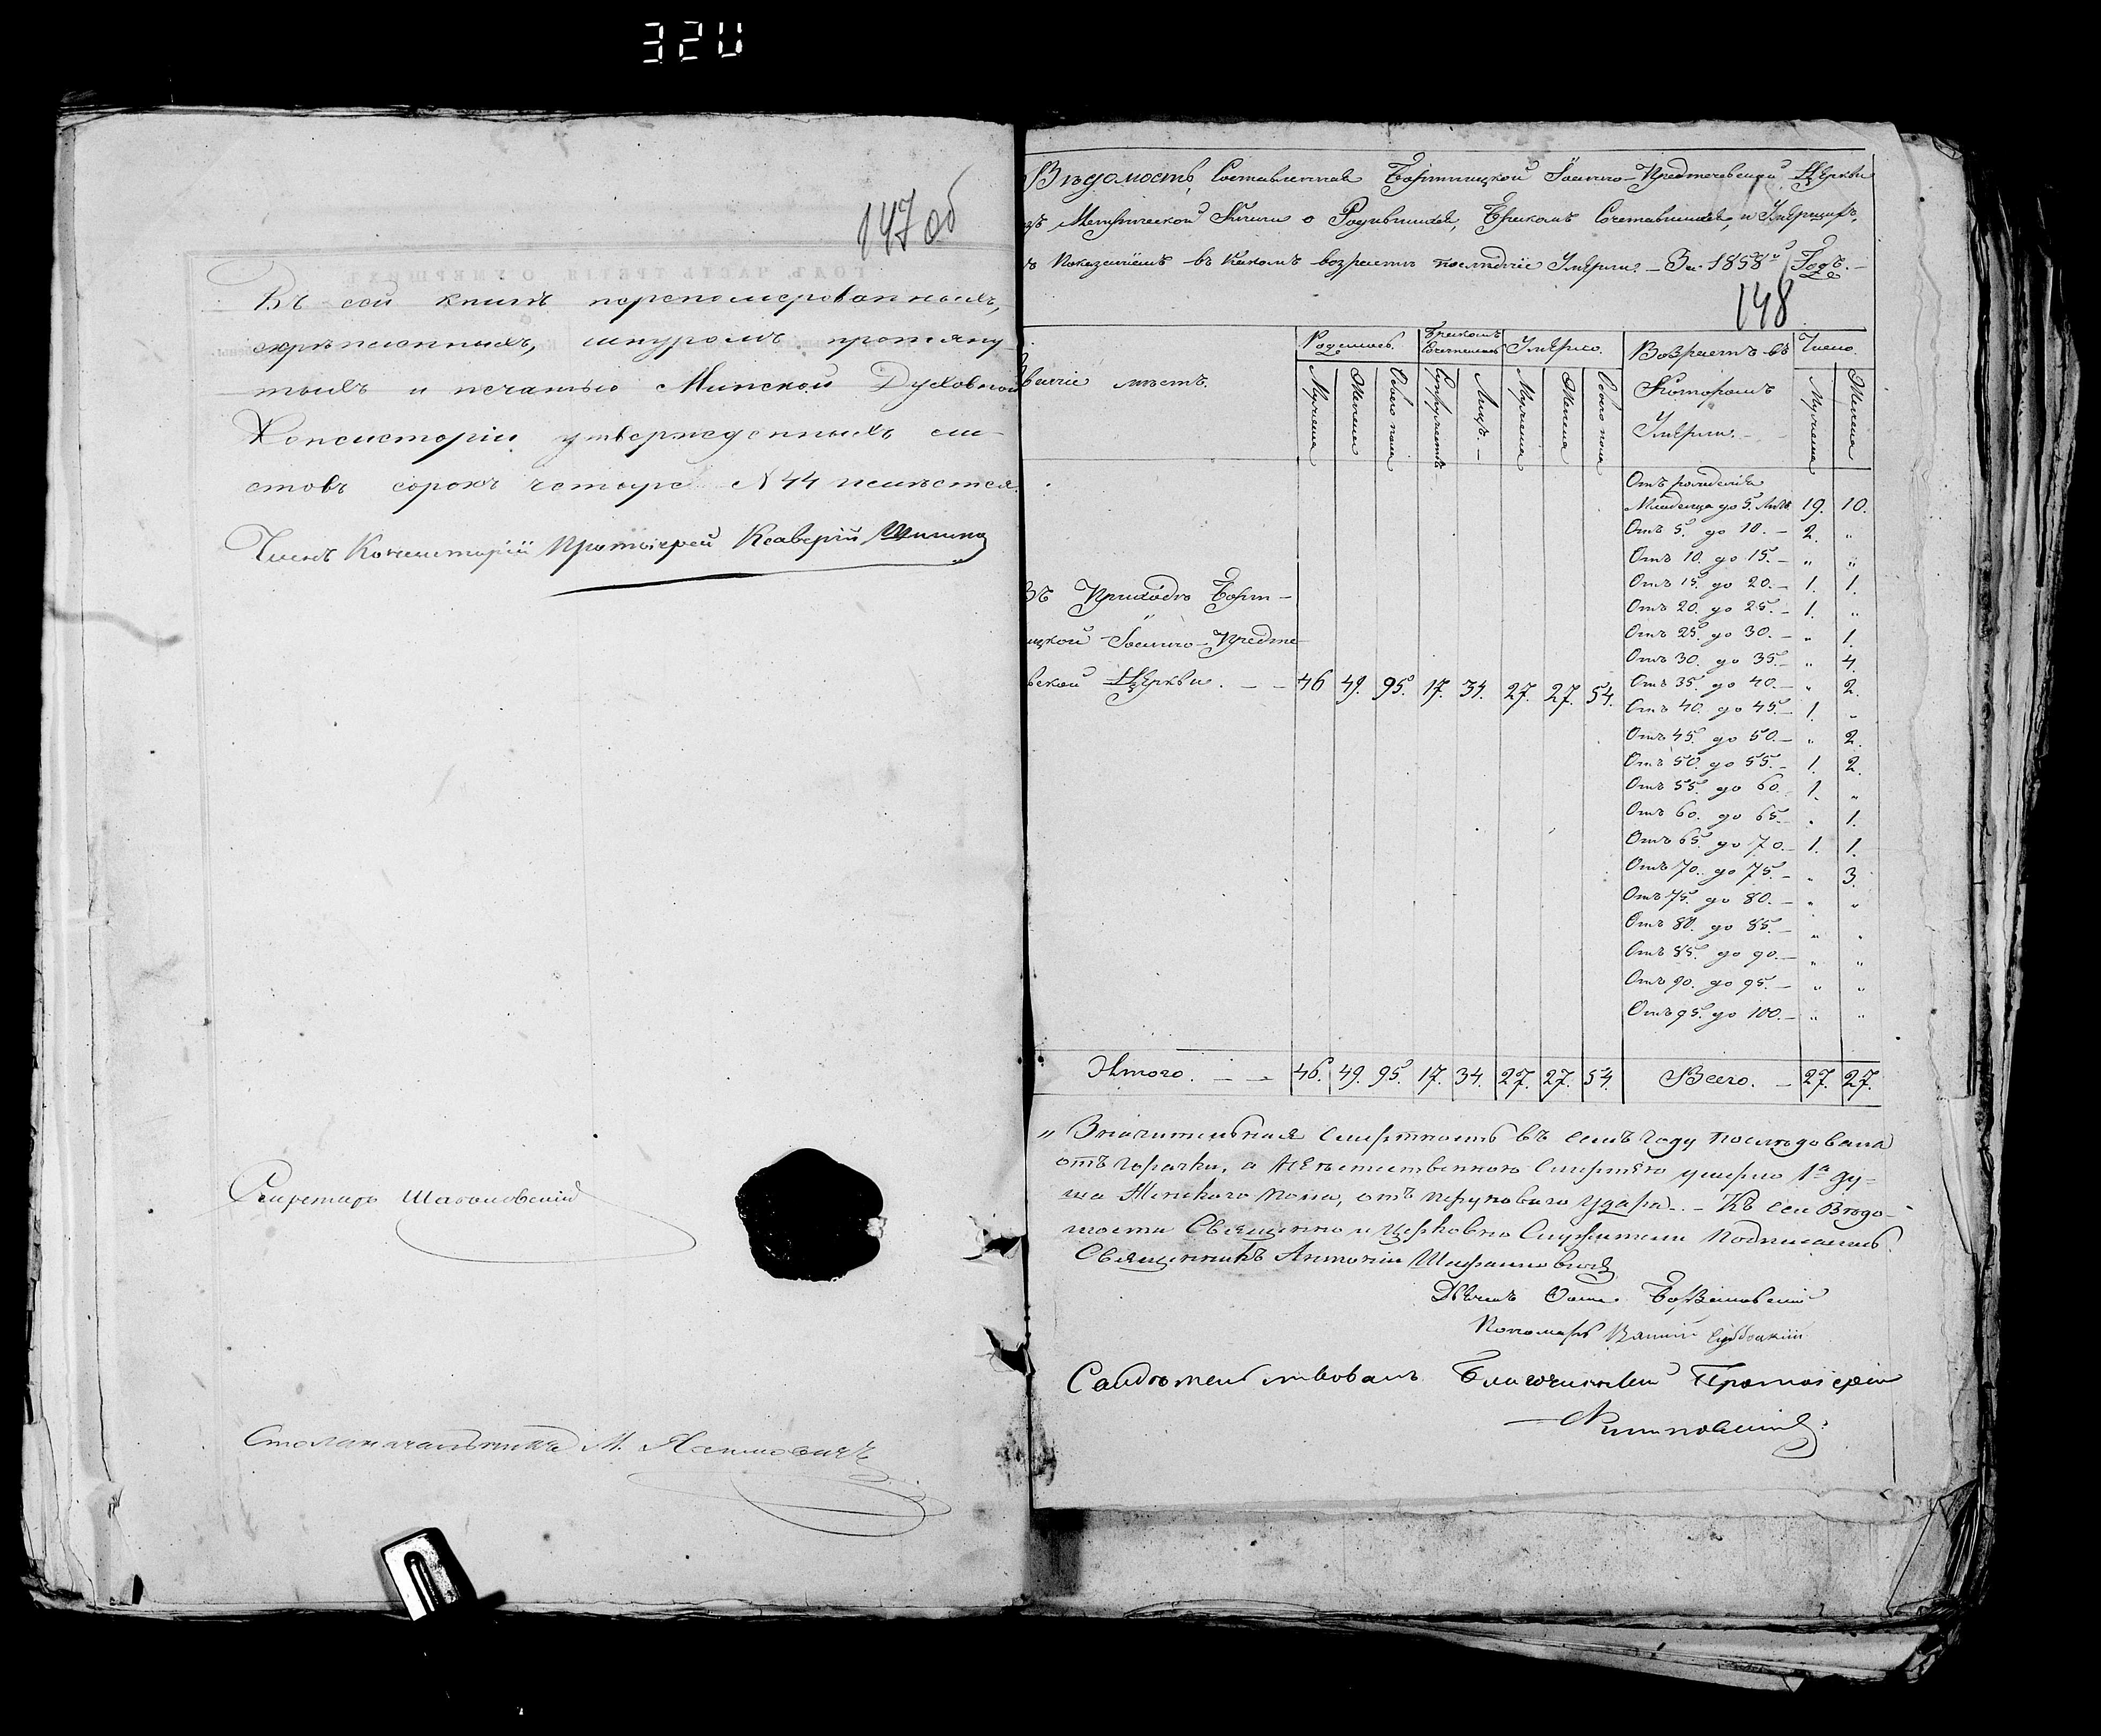 320
147 об
Въ сей книгѣ перенумерованныхъ,
скрѣпленныхъ, шнуромъ протяну-
тыхъ и печатью Минской Духовной
Консисторіи утвержденныхъ ли-
стовъ сорокъ четыре N 44 имѣется.
Членъ Консисторіи Протоіерей Ксаверій
Секретарь
Столоначальникъ М.
Вѣдомость, Составленная Бортницкой Іоанно-Предтечевской Церкви
Метрической Книги о Родившихся, Бракомъ Сочетавшихся, и Умершихъ,
показаніемъ въ какомъ возрастѣ послѣдніе Умерли. — За 1858й Годъ. —
148
ваніе мѣстъ.
Родилось.
Бракомъ Сочеталось
Умерло.
Возрастъ въ Которомъ Умерли. —
Число.
Мужеска
Женска
Обоего пола
Супружествъ
Лицъ. —
Мужеска
Женска
Обоего пола
Мужеска
Женска
Отъ рожденія
Младенца до 5. Лѣтъ 19. 10.
Отъ 5. до 10. — 2. „
Отъ 10. до 15. — „ „
Отъ 15. до 20. — 1. 1.
Отъ 20. до 25. — 1. „
Отъ 25. до 30. — „ 1.
Отъ 30. до 35. — „ 4.
Отъ 35. до 40. — „ 2.
Отъ 40. до 45. — 1. „
Отъ 45. до 50. — „ 2.
Отъ 50. до 55. — 1. 2.
Отъ 55. до 60. 1. „
Отъ 60. до 65. — „ 1.
Отъ 65. до 70. — 1. 1.
Отъ 70. до 75. — „ 3.
Отъ 75. до 80. — „ „
Отъ 80. до 85. — „ „
Отъ 85. до 90. — „ „
Отъ 90. до 95. — „ „
Отъ 95. до 100. — „ „
Въ Приходѣ Борт-
ицкой Іоанно-Предте-
вской Церкви. — — 46 49. 95. 17. 34. 27. 27. 54.
Итого. — — 46. 49. 95. 17. 34. 27. 27. 54. Всего. — 27. 27.
„ Значительная смертность въ семъ году послѣдовала
отъ горячки, а неестественною смертію умерло 1а ду-
ша Женскаго пола, отъ перуноваго удара. — Къ сей Вѣдо-
мости Священно и церковно Служители подписались.
Священникъ Антоній
Дьячекъ
Пономарь
Свидѣтельствовалъ Благочинный Протоіерей